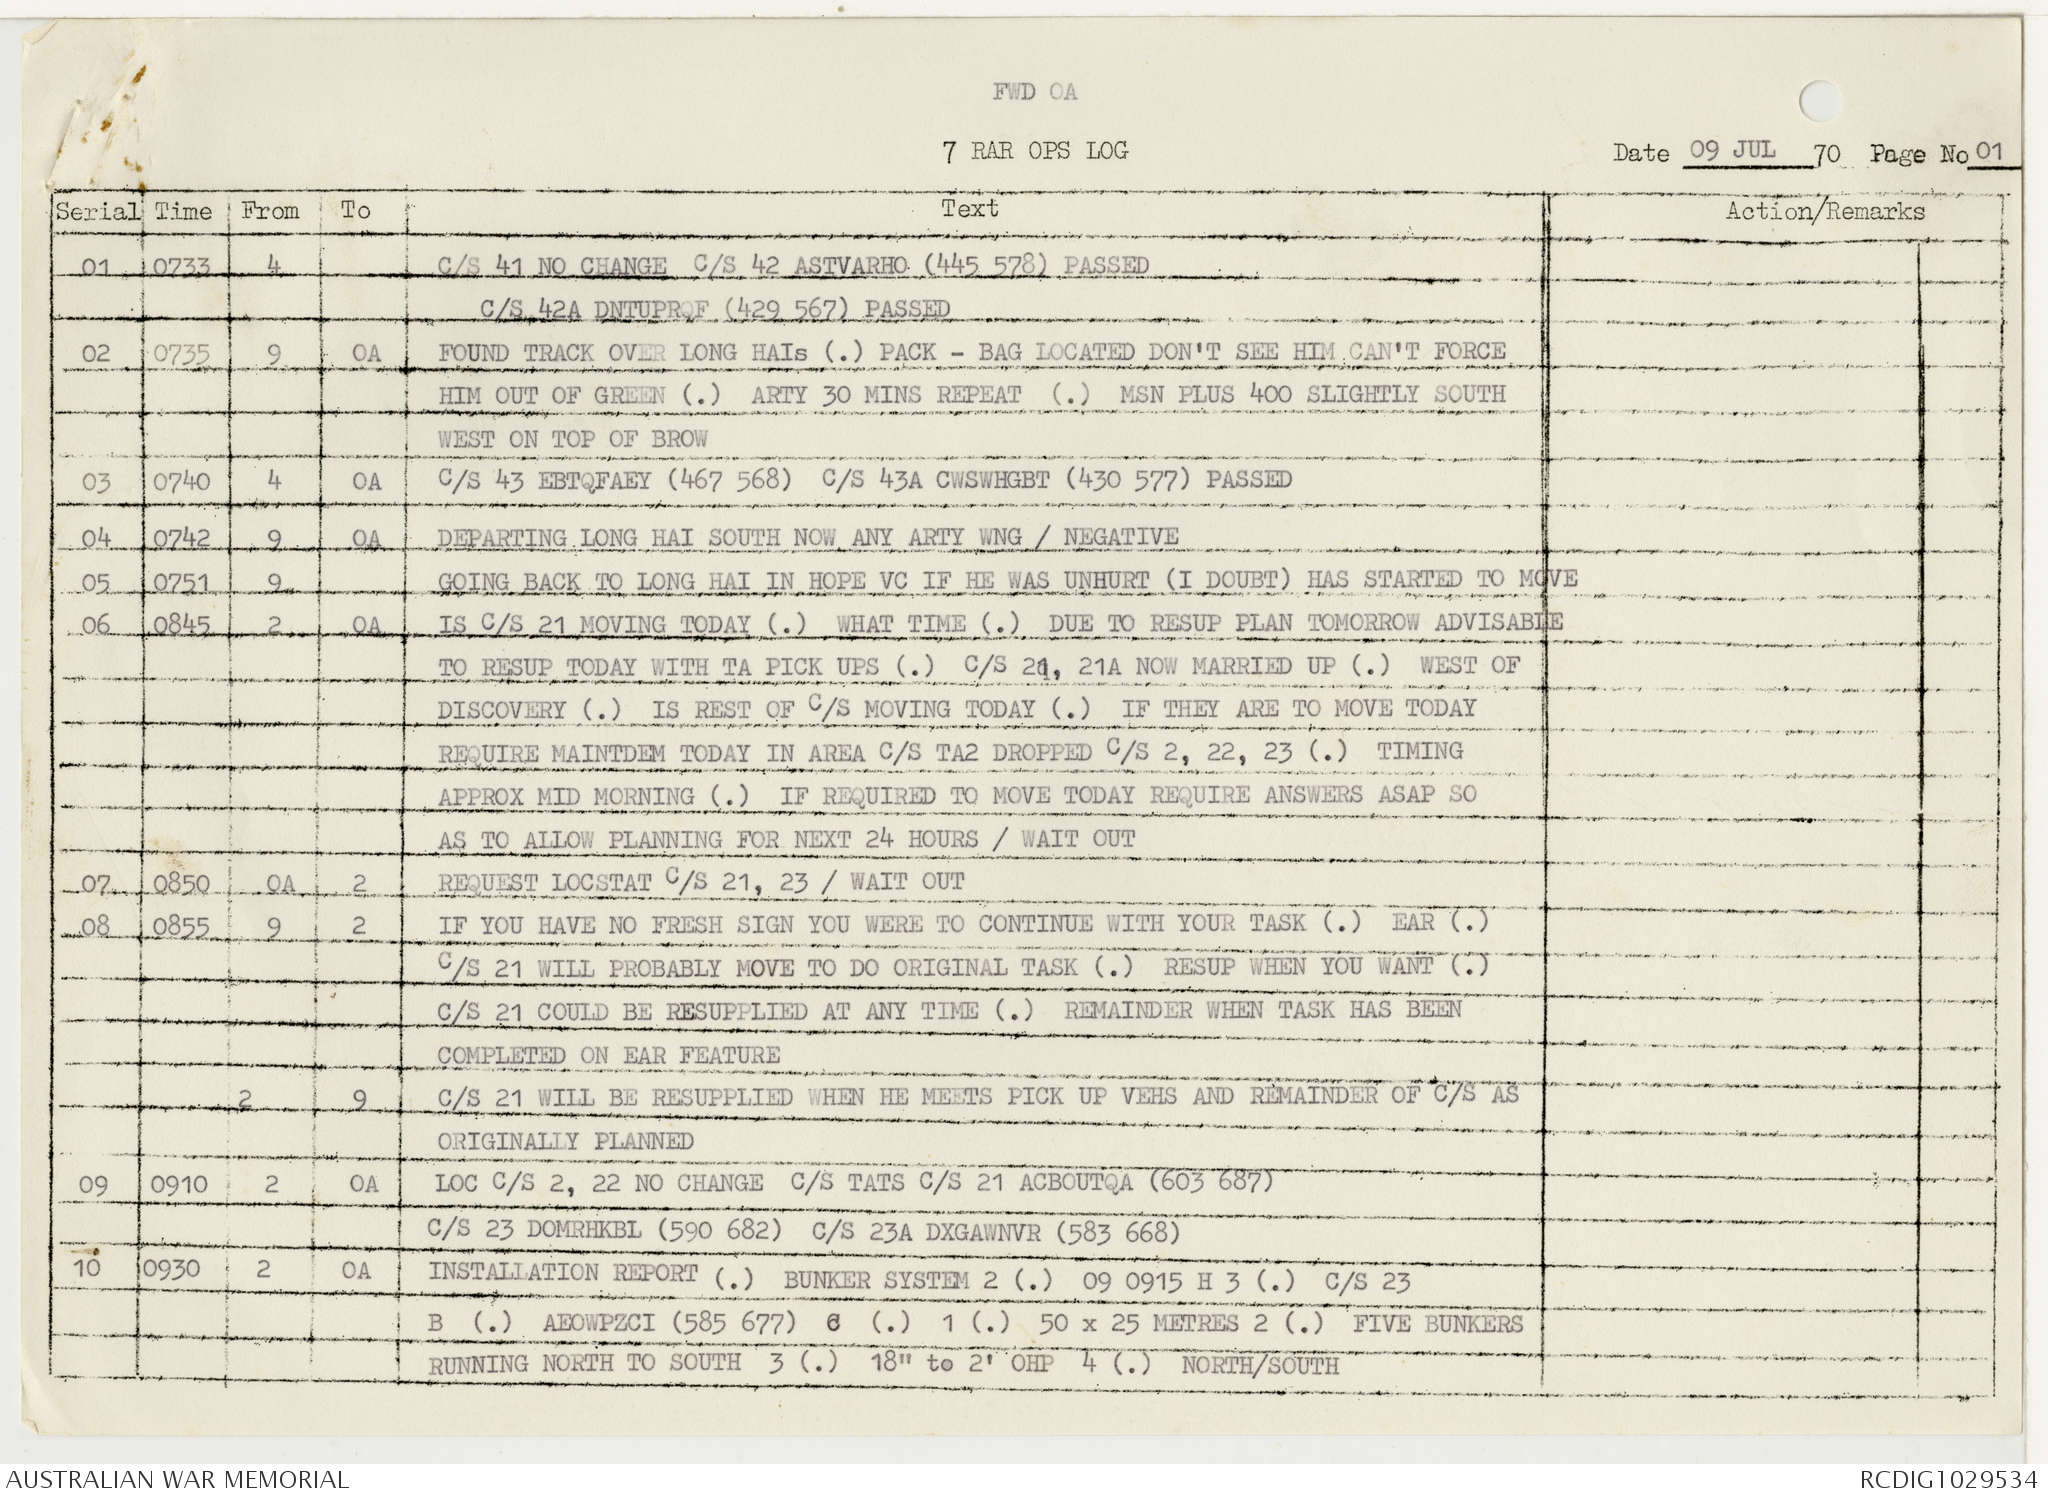 FWD OA
7 RAR OPS LOG
Date 09 JUL 70 Page No 01
Serial Time From To Text Action/Remarks
01 0733 4 C/S 41 NO CHANGE C/S 42 ASTVARHO (445 578) PASSED
C/S 42A DNTUPRQF (429 567) PASSED
02 0735 9 OA FOUND TRACK OVER LONG HAIs (.) PACK - BAG LOCATED DON'T SEE HIM CAN'T FORCE
HIM OUT OF GREEN (.) ARTY 30 MINS REPEAT (.) MSN PLUS 400 SLIGHTLY SOUTH
WEST ON TOP OF BROW
03 0740 4 OA C/S 43 EBTQFAEY (467 568) C/S 43A CWSWHGBT (430 577) PASSED
04 0742 9 OA DEPARTING LONG HAI SOUTH NOW ANY ARTY WNG / NEGATIVE
05 0751 9 GOING BACK TO LONG HAI IN HOPE VC IF HE WAS UNHURT (I DOUBT) HAS STARTED TO MOVE
06 0845 2 OA IS C/S 21 MOVING TODAY (.) WHAT TIME (.) DUE TO RESUP PLAN TOMORROW ADVISABLE
TO RESUP TODAY WITH TA PICK UPS (.) C/S 21, 21A NOW MARRIED UP (.) WEST OF
DISCOVERY (.) IS REST OF C/S MOVING TODAY (.) IF THEY ARE TO MOVE TODAY
REQUIRE MAINTDEM TODAY IN AREA C/S TA2 DROPPED C/S 2, 22, 23 (.) TIMING
APPROX MID MORNING (.) IF REQUIRED TO MOVE TODAY REQUIRE ANSWERS ASAP SO
AS TO ALLOW PLANNING FOR NEXT 24 HOURS / WAIT OUT
07 0850 OA 2 REQUEST LOCSTAT C/S 21, 23 / WAIT OUT
08 0855 9 2 IF YOU HAVE NO FRESH SIGN YOU WERE TO CONTINUE WITH YOUR TASK (.) EAR (.)
C/S 21 WILL PROBABLY MOVE TO DO ORIGINAL TASK (.) RESUP WHEN YOU WANT (.)
C/S 21 COULD BE RESUPPLIED AT ANY TIME (.) REMAINDER WHEN TASK HAS BEEN
COMPLETED ON EAR FEATURE
2 9 C/S 21 WILL BE RESUPPLIED WHEN HE MEETS PICK UP VEHS AND REMAINDER OF C/S AS
ORIGINALLY PLANNED
09 0910 2 OA LOC C/S 2, 22 NO CHANGE C/S TATS C/S 21 ACBOUTQA (603 687)
C/S 23 DOMRHKBL (590 682) C/S 23A DXGAWNVR (583 668)
10 0930 2 OA INSTALLATION REPORT (.) BUNKER SYSTEM 2 (.) 09 0915 H 3 (.) C/S 23
B (.) AEOWPZCI (585 677) C (.) 1 (.) 50 x 25 METRES 2 (.) FIVE BUNKERS
RUNNING NORTH TO SOUTH 3 (.) 18" to 2' OHP 4 (.) NORTH/SOUTH
AUSTRALIAN WAR MEMORIAL RCDIG1029534